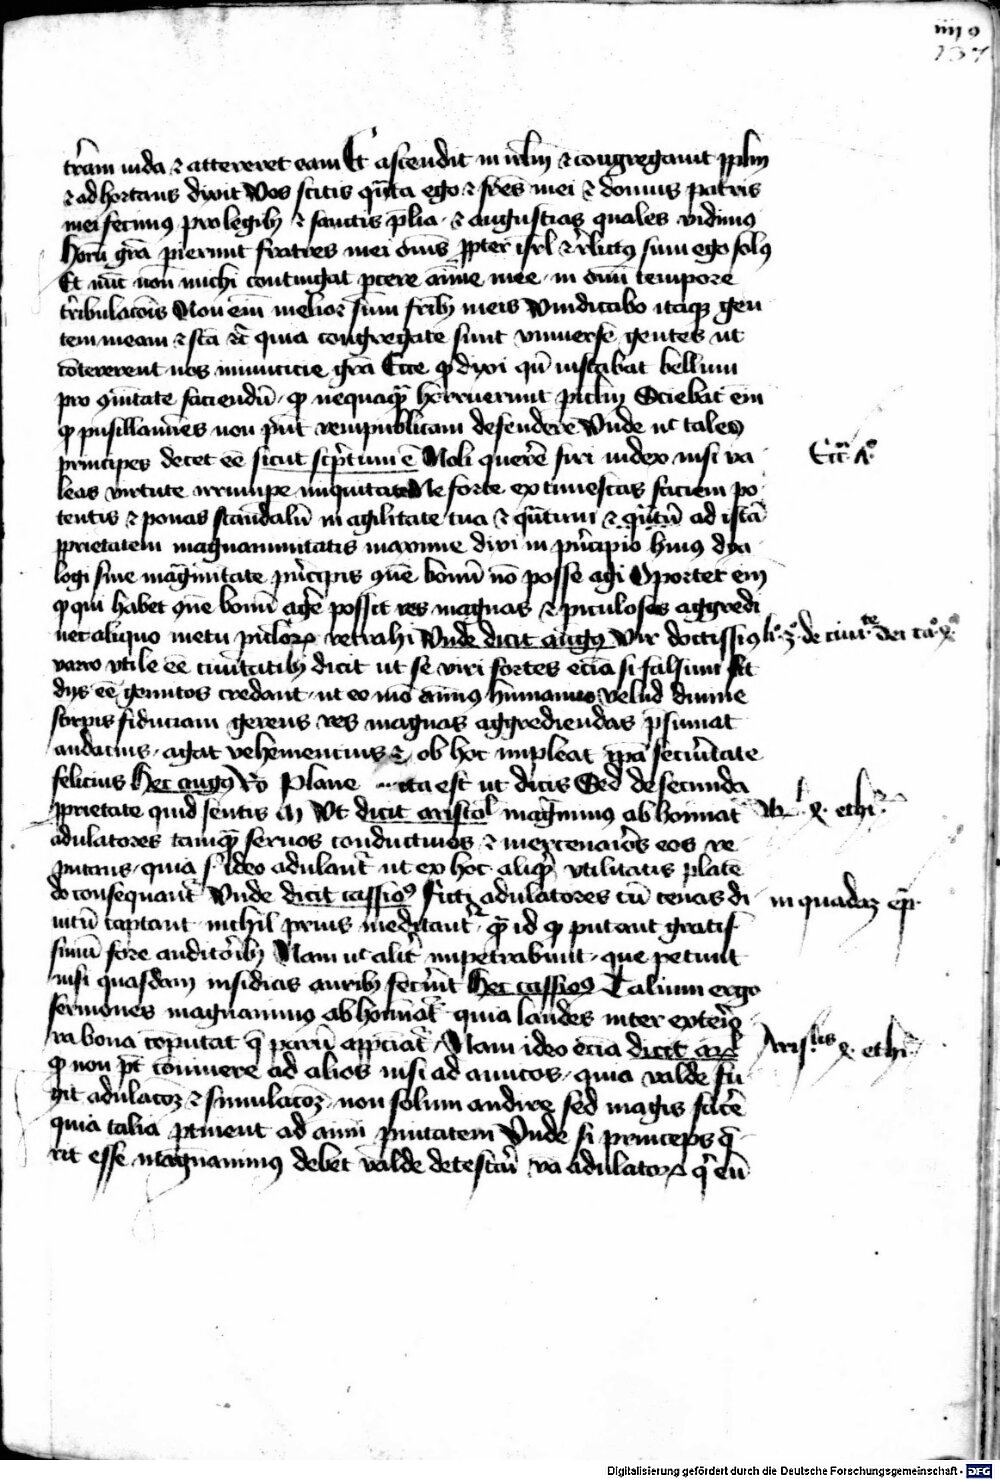 iiii 9
137
t̄ram iuda ⁊ attereret eam Et ascendit in irl̄m ⁊ congregauit pplm̄
⁊ adhortans dixit Vos scitis q̄nta ego ⁊ fr̄es mei ⁊ domus patris
mei fecimus pro legib; ⁊ sanctis p̄lia ⁊ angustias quales vidimus
Horū grā perierunt fratres mei om̄s propter isrl̄ ⁊ r̄lictus sum ego solus
Et nūc non michi contingat p̄cere anīe mee in om̄i tempore
tribulacōis Non enī melior sum frīb; meis Vindicabo itaq; gen
tem meam ⁊ sc̄a ⁊c̄ quia congregate sunt vniuerse gentes ut
cōtererent nos inimicicie grā Ecce q̄ dixi qn̄ instabat bellum
pro ciuitate faciendū q̄ nequaq̄ horruerunt piclm̄ Sciebat enī
q̄ pusillanīes non p̄nt rempublicam defendere Vnde nc̄ tales
principes decet eē sicut scriptum ē Noli querere fieri iudex nisi va
leas virtute irrumpe iniquitates Ne forte extimescas faciem po
tentis ⁊ ponas scandalū in agilitate tua ⁊ q̄ntum ⁊ q̄ntū ad istā
proprietatem magnanimitatis maxime dixi in principio huius dya
logi sine magnīmitate principis cōe bonū nō posse agi Oportet enī
q̄ qui habet cōe bonū agere possit res magnas ⁊ piculosas aggredi
nec aliquo metu piclor̄ retrahi Vnde dicit augus Vir doctissimus
varro vtile eē ciuitatib; dicit ut se viri fortes eciā si falsum sit
dys eē genitos credant ut eo mō animus humanus velud diuine
stirpis fiduciam gerens res magnas aggrediendas p̄sumat
audacius agat vehemencius ⁊ ob hoc impleat ipā securitate
felicius Hec augus R̄o Plane ita est ut dicis Sed de secunda
proprietate quid sentis M̄ Vt dicit aristol magnīmus abhominat̄
adulatores tamq̄ seruos conductiuos ⁊ mercenarios eos re
putans quia sc̄ ideo adulant̄ ut ex hoc aliq̄ vtilitatis
consequant̄ Vnde dicit cassio⁹ Ficti adulatores cū cenas di
uitū captant nichil prius meditant̄ q̄ id q̄ putant gratis
simū fore auditorib; Nam nc̄ alit̄ impetrabunt que petunt
nisi quasdam insidias aurib; fecerint Hec cassio⁹ Talium ergo
sermones magnanimus abhominat̄ quia laudes inter exterio
ra bona cōputat q̄ parū appciat̄ Nam ideo eciā dicit ar̄
q̄ non p̄t conuiuere ad alios nisi ad amicos quia valde fu
git adulacōz ⁊ simulacōz non solum audire sed magis facere
quia talia ptinent ad anīm priuatatem Vnde si princeps q̄
rit esse magnanimus debet valde detestari vā adulator̄ q̄ eū
Ecc̄i
li⁰ 3⁰ de ciuitᵗᵉ dei ca⁰
x ethi
in quadaz ep̄
Aris lis x ethi
Digitalisierung gefördert durch die Deutsche Forschungsgemeinschaft - DFG